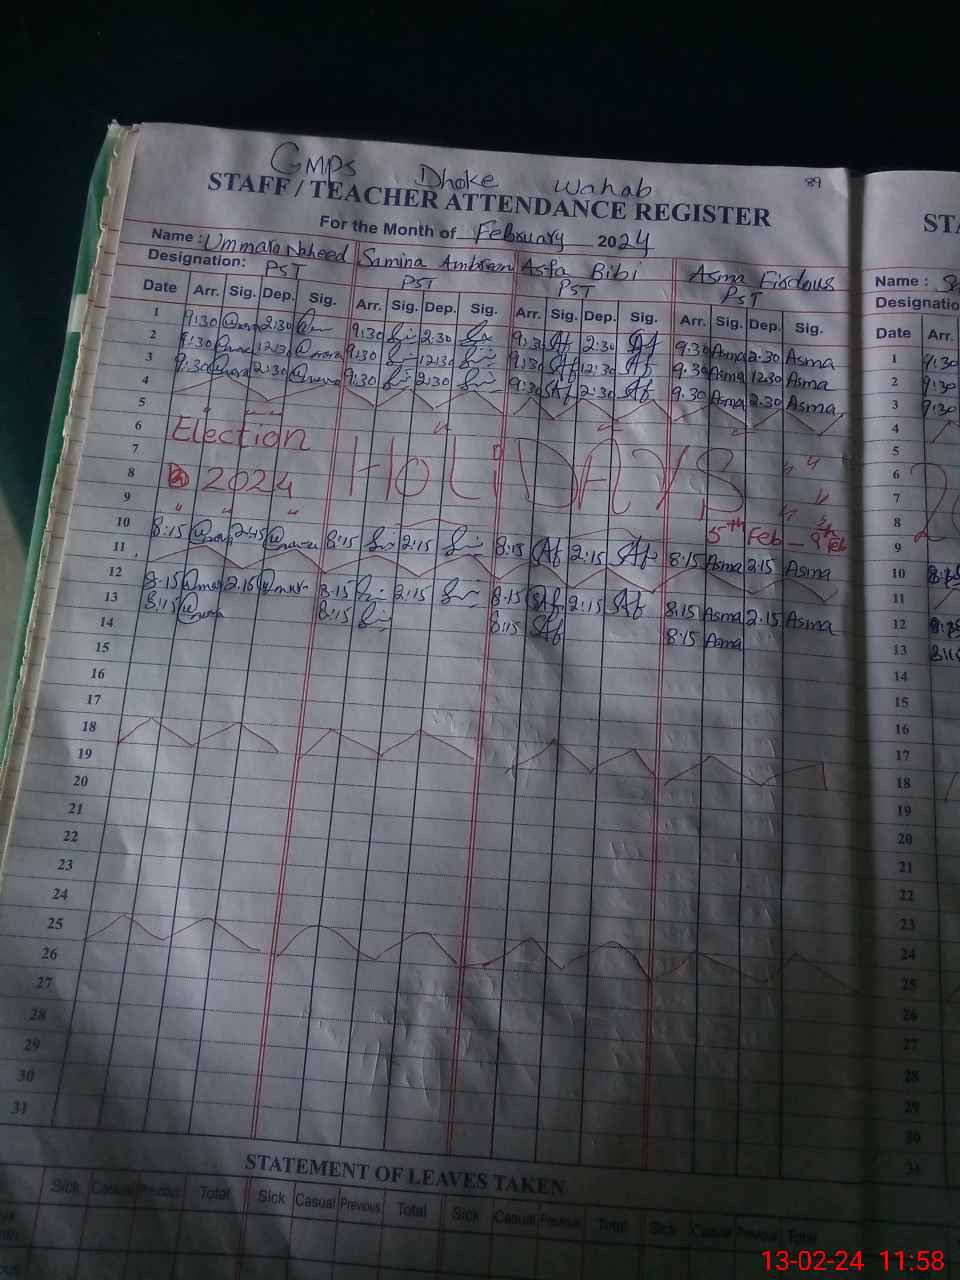 GMPS Dhoke Wahab
89
STAFF / TEACHER ATTENDANCE REGISTER
For the Month of February 2024
Name: Ummara Naheed Samina Ambreen Asfa Bibi Asma Firdous
Designation: PST PST PST PST
Date Arr. Sig. Dep. Sig. Arr. Sig. Dep. Sig. Arr. Sig. Dep. Sig. Arr. Sig. Dep. Sig.
1 9:30 2:30 9:30 2:30 9:30 2:30 9:30 Asma 2:30 Asma
2 9:30 12:30 9:30 12:30 9:30 12:30 9:30 Asma 12:30 Asma
3 9:30 2:30 9:30 2:30 9:30 2:30 9:30 Asma 2:30 Asma
4
5
6 Election HOLIDAYS
7
8 2024
9 5th Feb - 9th Feb
10 8:15 2:15 8:15 2:15 8:15 2:15 8:15 Asma 2:15 Asma
11
12 8:15 2:15 8:15 2:15 8:15 2:15 8:15 Asma 2:15 Asma
13 8:15 8:15 8:15 8:15 Asma
14
15
16
17
18
19
20
21
22
23
24
25
26
27
28
29
30
31
STATEMENT OF LEAVES TAKEN
Sick Casual Previous Total Sick Casual Previous Total Sick Casual Previous Total Sick Casual Previous Total
STA
Name :
Designatio
Date Arr.
1 9:30
2 9:30
3 9:30
4
5
6
7
8
9
10
11
12
13 8:15
14
15
16
17
18
19
20
21
22
23
24
25
26
27
28
29
30
31
13-02-24 11:58